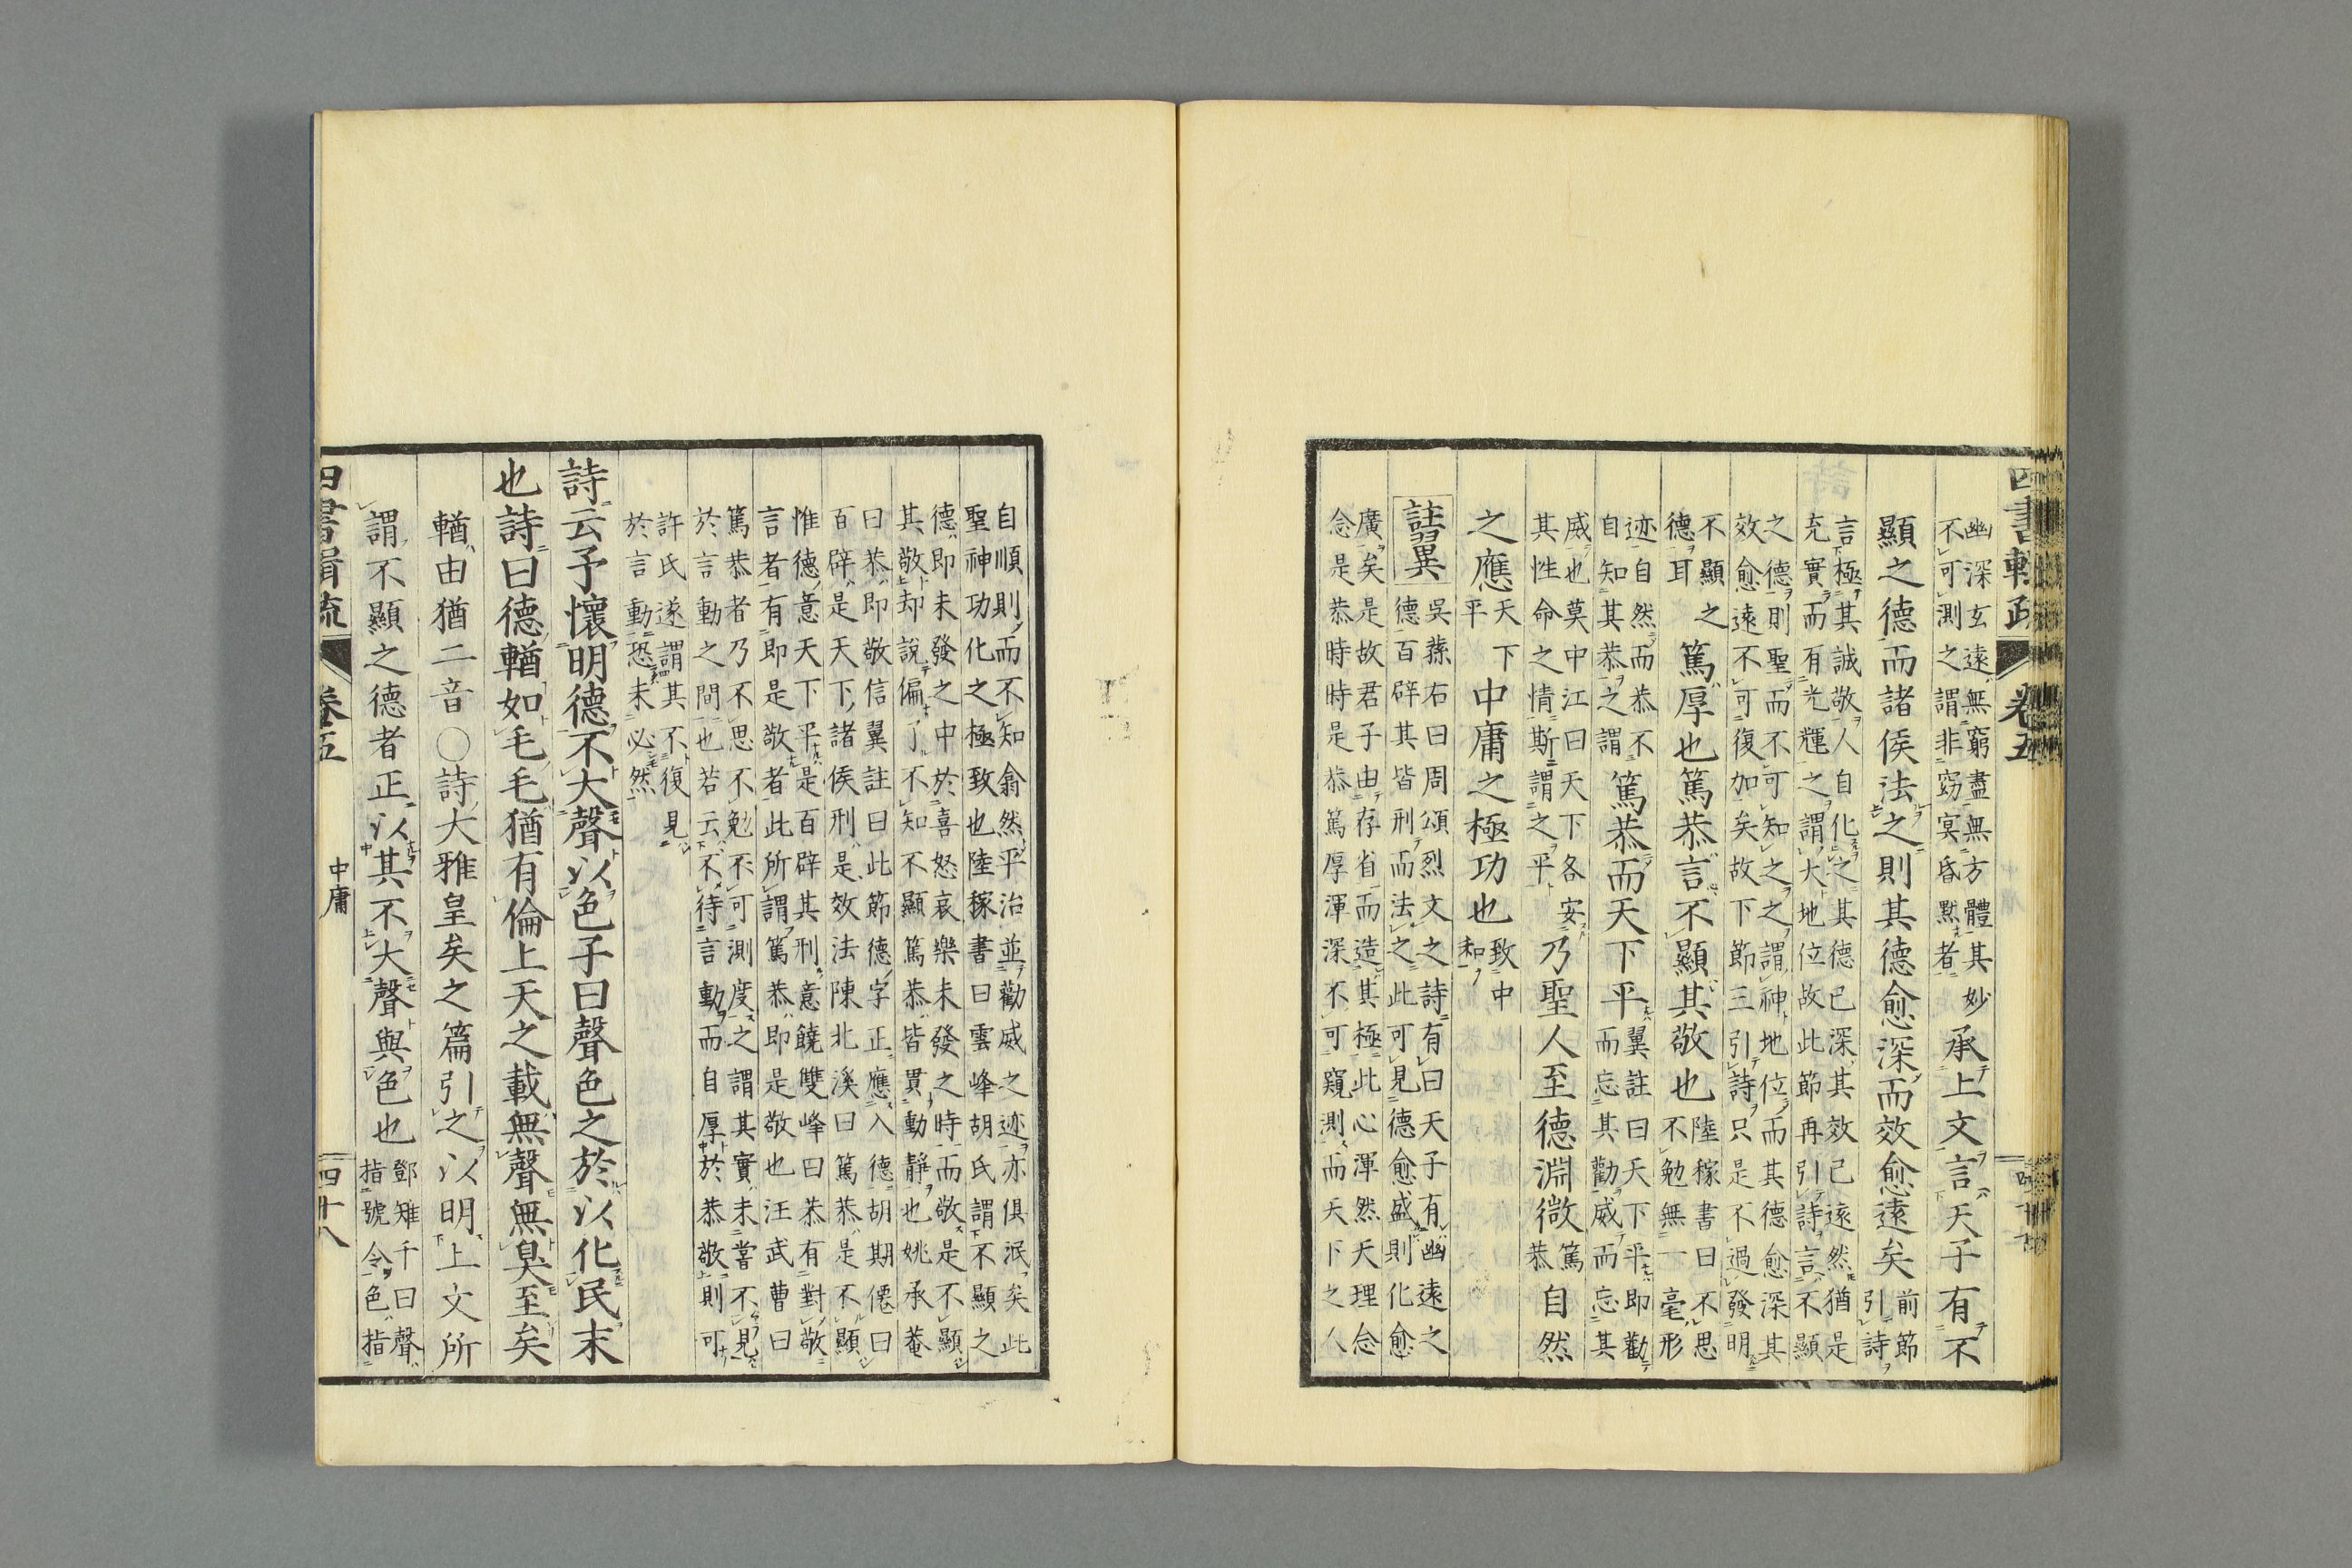 幽深玄遠無窮盡無方體其妙
不可測之謂非窈冥昏默者
承上文言天子有不
顯之德而諸侯法之則其德愈深而效愈遠矣
前節
引詩
言極其誠敬人自化之其德已深其效已遠然猶是
充實而有光輝之謂大地位故此節再引詩言不顯
之德則聖而不可知之之謂神地位而其德愈深其
效愈遠不可復加矣故下節三引詩只是不過發明
不顯之
德耳
篤厚也篤恭言不顯其敬也
陸稼書曰不思
不勉無一毫形
迹自然而恭不
自知其恭之謂
篤恭而天下平
翼註曰天下平即勸
而忘其勸威而忘其
威也莫中江曰天下各安
其性命之情斯謂之平
乃聖人至德淵微
篤
恭
自然
之應
天下
平
中庸之極功也
致中
和
註翼
吳蓀右曰周頌烈文之詩有曰天子有幽遠之
德百辟其皆刑而法之此可見德愈盛則化愈
廣矣是故君子由存省而造其極此心渾然天理念
念是恭時時是恭篤厚渾深不可窺測而天下之人
自順則而不知翕然平治並勸威之迹亦俱泯矣此
聖神功化之極致也陸稼書曰雲峰胡氏謂不顯之
德即未發之中於喜怒哀樂未發之時而敬是不顯
其敬却說偏了不知不顯篤恭皆貫動靜也姚承菴
曰恭即敬信翼註曰此節德字正應入德胡期僊曰
百辟是天下諸侯刑是效法陳北溪曰篤恭是不顯
惟德意天下平是百辟其刑意饒雙峰曰恭有對敬
言者有即是敬者此所謂篤恭即是敬也汪武曹曰
篤恭者乃不思不勉不可測度之謂其實未嘗不見
於言動之間也若云不待言動而自厚於恭敬則可
許氏遂謂其不復見
於言動恐未必然
詩云予懷明德不大聲以色子曰聲色之於以化民末
也詩曰德輶如毛毛猶有倫上天之載無聲無臭至矣
輶由猶二音〇詩大雅皇矣之篇引之以明上文所
謂不顯之德者正以其不大聲與色也
鄧雉千曰聲
指號令色指
四書輯疏
卷五
中庸
四十八